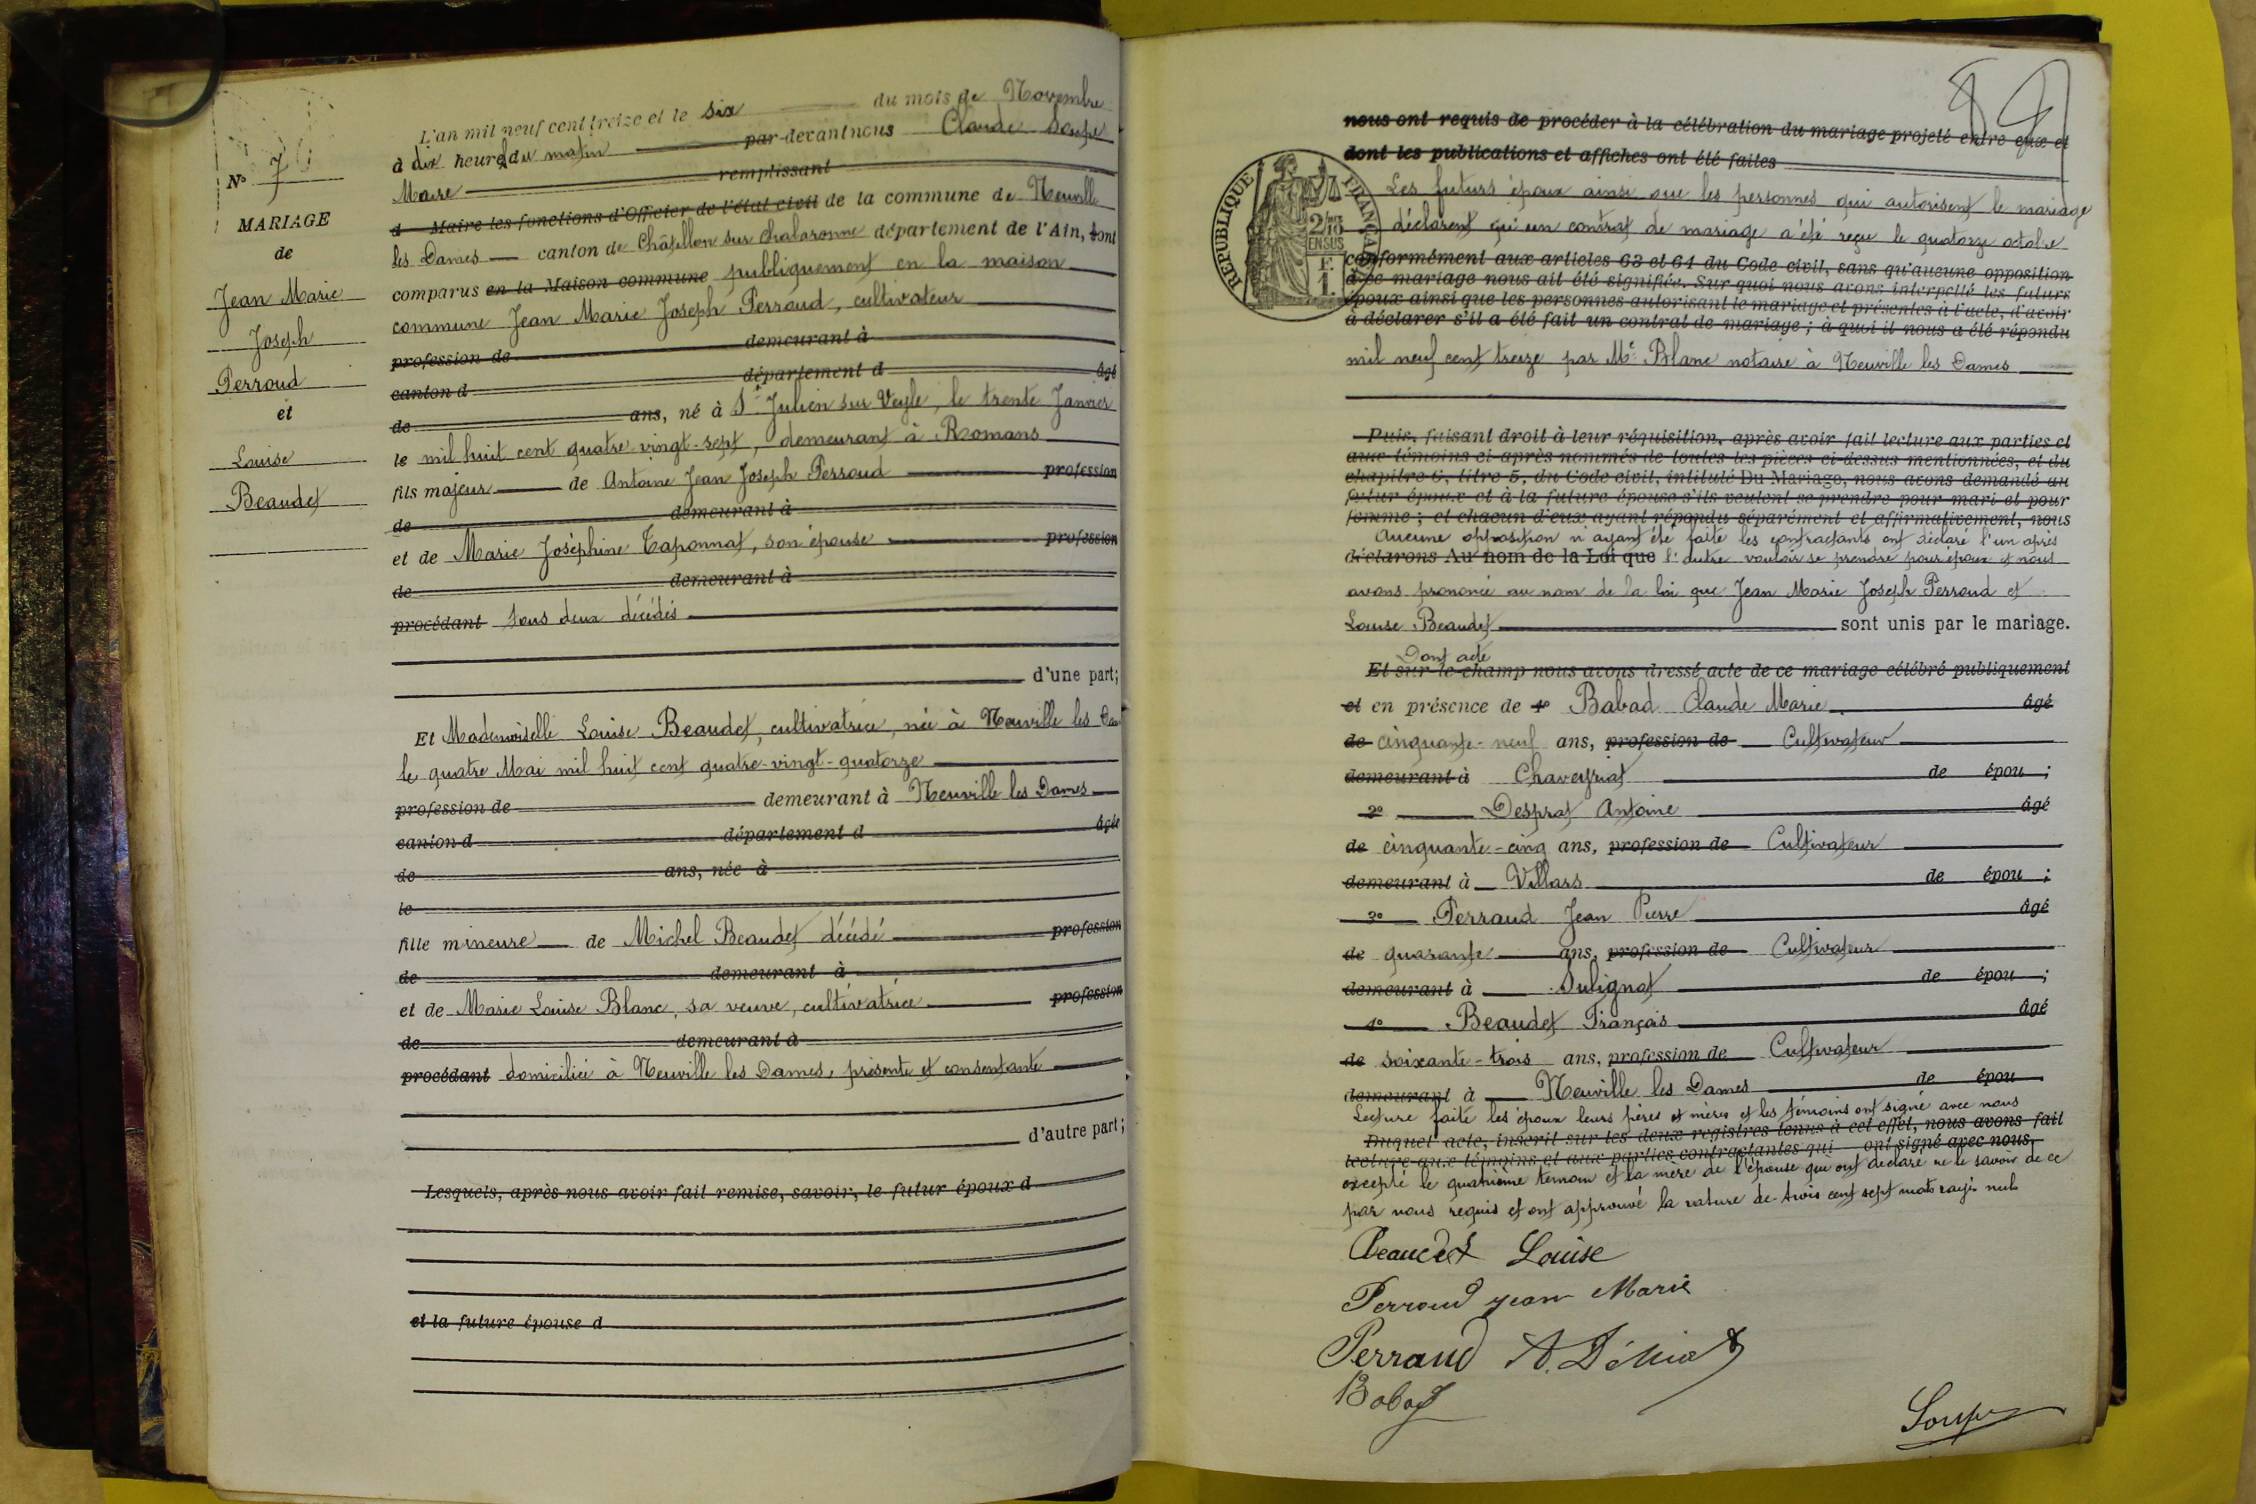 L'an mil neuf cent treize et le six du mois de Novembre
à dix heures du matin par-devant nous Claude Soupe
Maire remplissant
d Maire les fonctions d'Officier de l'état civil de la commune de Neuville
les Dames canton de Châtillon sur Chalaronne département de l'Ain, sont
comparus en la Maison commune publiquement en la maison
commune Jean Marie Joseph Perroud, cultivateur
profession de demeurant à
canton d département d âgé
de ans, né à St Julien sur Veyle, le trente Janvier
le mil huit cent quatre vingt-sept, demeurant à Romans
fils majeur de Antoine Jean Joseph Perroud profession
de demeurant à
et de Marie Joséphine Taponnat, son épouse profession
de demeurant à
procédant tous deux décédés
d'une part;
Et Mademoiselle Louise Beaudet, cultivatrice, née à Neuville les Dam
le quatre Mai mil huit cent quatre-vingt-quatorze
profession de demeurant à Neuville les Dames
canton d département d âgée
de ans, née à
le
fille mineure de Michel Beaudet décédé profession
de demeurant à
et de Marie Louise Blanc, sa veuve, cultivatrice profession
de demeurant à
procédant domiciliée à Neuville les Dames, présente et consentante
d'autre part;
Lesquels, après nous avoir fait remise, savoir, le futur époux d
et la future épouse d
N°
MARIAGE
de
Jean Marie
Joseph
Perroud
et
Louise
Beaudet
nous ont requis de procéder à la célébration du mariage projeté entre eux et
dont les publications et affiches ont été faites
Les futurs époux ainsi que les personnes qui autorisent le mariage
déclarent qu'un contrat de mariage a été reçu le quatorze octobre
conformément aux articles 63 et 64 du Code civil, sans qu'aucune opposition
à ce mariage nous ait été signifiée. Sur quoi nous avons interpellé les futurs
époux ainsi que les personnes autorisant le mariage et présentes à l'acte, d'avoir
à déclarer s'il a été fait un contrat de mariage ; à quoi il nous a été répondu
mil neuf cent treize par Me Blanc notaire à Neuville les Dames
REPUBLIQUE FRANÇAISE
2/10
EN SUS
F.
1.
Puis, faisant droit à leur réquisition, après avoir fait lecture aux parties et
aux témoins ci-après nommés de toutes les pièces ci-dessus mentionnées, et du
chapitre 6, titre 5, du Code civil, intitulé Du Mariage, nous avons demandé au
futur époux et à la future épouse s'ils veulent se prendre pour mari et pour
femme ; et chacun d'eux ayant répondu séparément et affirmativement, nous
Aucune opposition n'ayant été faite les contractants ont déclaré l'un après
déclarons Au nom de la Loi que l'autre vouloir se prendre pour époux et nous
avons prononcé au nom de la loi que Jean Marie Joseph Perroud et
Louise Beaudet sont unis par le mariage.
Dont acte
Et sur-le-champ nous avons dressé acte de ce mariage célébré publiquement
et en présence de 1° Babad Claude Marie âgé
de cinquante-neuf ans, profession de Cultivateur
demeurant à Chaveyriat de épou ;
2° Desprat Antoine âgé
de cinquante-cinq ans, profession de Cultivateur
demeurant à Villars de épou ;
3° Perraud Jean Pierre âgé
de quarante ans, profession de Cultivateur
demeurant à Sulignat de épou ;
4° Beaudet François âgé
de soixante-trois ans, profession de Cultivateur
demeurant à Neuville les Dames de épou
Lecture faite les époux leurs pères et mères et les témoins ont signé avec nous
Duquel acte, inscrit sur les deux registres tenus à cet effet, nous avons fait
lecture aux témoins et aux parties contractantes qui ont signé avec nous,
excepté le quatrième témoin et la mère de l'épouse qui ont déclaré ne le savoir de ce
par nous requis et ont approuvé la rature de trois cent sept mots rayés nuls
Beaudet Louise
Perroud Jean Marie
Perraud
Babad
Soupe